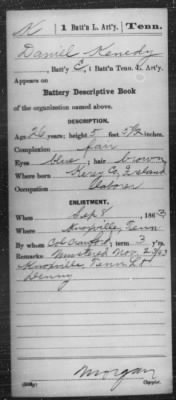 K | 1 Batt'n L. Art'y. | Tenn.
Daniel Kenedy
, Batt'y C, 1 Batt'n Tenn. L. Art'y.
Appears on
Battery Descriptive Book
of the organization named above.
DESCRIPTION.
Age 26 years; height 5 feet inches.
Complexion fair
Eyes blue; hair brown
Where born Co, Ireland
Occupation Laborer
ENLISTMENT.
When Sep 8, 1863.
Where Knoxville, Tenn
By whom Col Crawford; term 3 y'rs.
Remarks Mustered Nov
Knoxville, Tenn Lt
Denny
Morgan
Copyist.